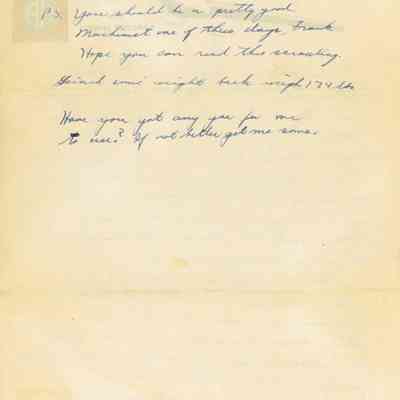 P.S. You should be a pretty good
Machinist one of these days, Frank
Hope you can read this scrawling.
Gained some weight back weigh 174 lbs
Have you got any gas for me
to use? If not better get me some.